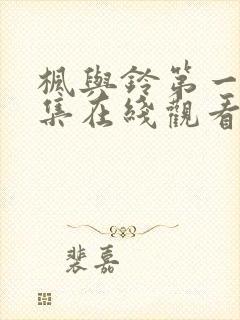 楓與鈴第一
集在綫觀看
裴嘉